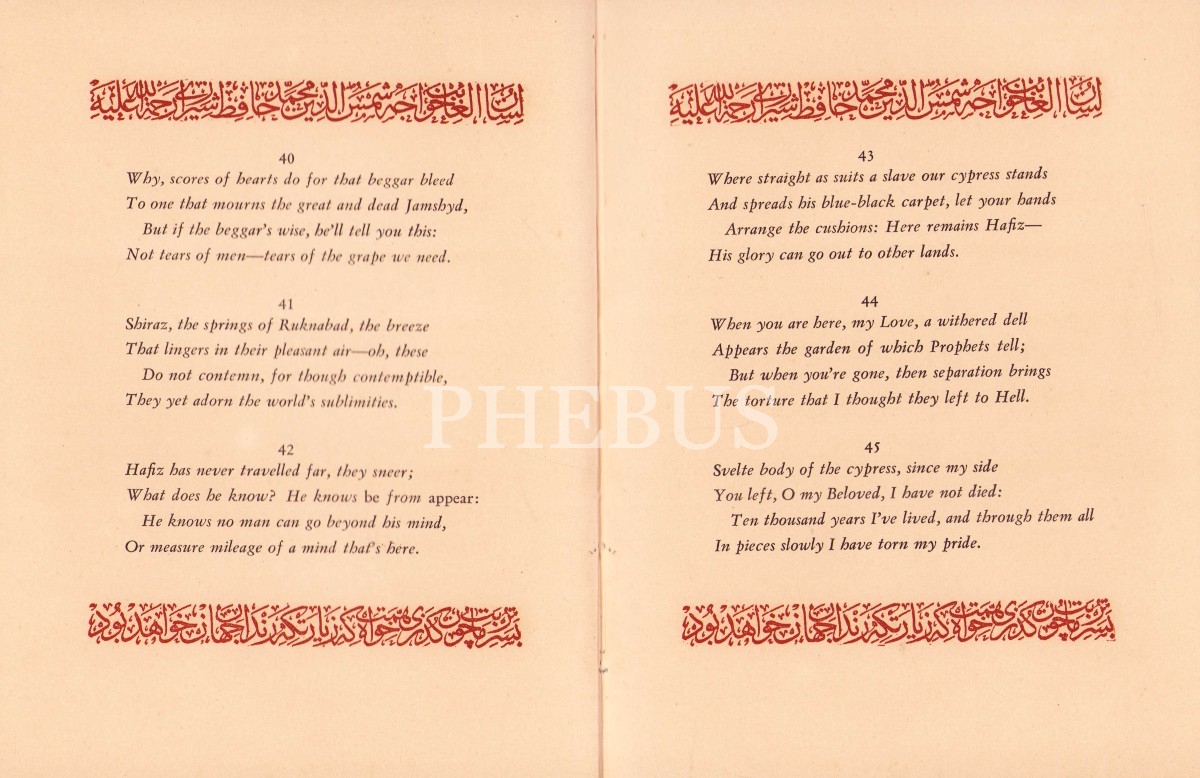 لسان الغیب خواجه شمس الدین محمد حافظ شیرازی رحمة الله علیه
40
Why, scores of hearts do for that beggar bleed
To one that mourns the great and dead Jamshyd,
But if the beggar's wise, he'll tell you this:
Not tears of men—tears of the grape we need.
41
Shiraz, the springs of Ruknabad, the breeze
That lingers in their pleasant air—oh, these
Do not contemn, for though contemptible,
They yet adorn the world's sublimities.
42
Hafiz has never travelled far, they sneer;
What does he know? He knows be from appear:
He knows no man can go beyond his mind,
Or measure mileage of a mind that's here.
بر سر تربت ما چون گذری همت خواه که زیارتگه رندان جهان خواهد بود
لسان الغیب خواجه شمس الدین محمد حافظ شیرازی رحمة الله علیه
43
Where straight as suits a slave our cypress stands
And spreads his blue-black carpet, let your hands
Arrange the cushions: Here remains Hafiz—
His glory can go out to other lands.
44
When you are here, my Love, a withered dell
Appears the garden of which Prophets tell;
But when you're gone, then separation brings
The torture that I thought they left to Hell.
45
Svelte body of the cypress, since my side
You left, O my Beloved, I have not died:
Ten thousand years I've lived, and through them all
In pieces slowly I have torn my pride.
بر سر تربت ما چون گذری همت خواه که زیارتگه رندان جهان خواهد بود
PHEBUS